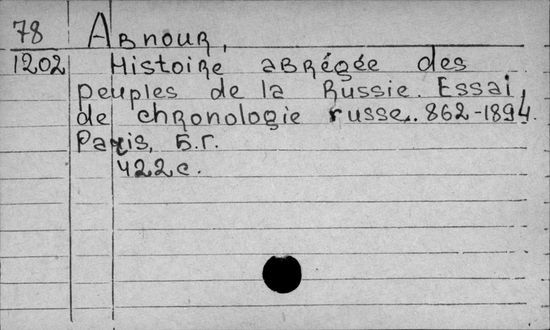 78 Abnour,
1202 Histoire abrégée des
peuples de la Russie. Essai,
de chronologie russe.. 862-1894.
Paris, Б.г.
422 с.